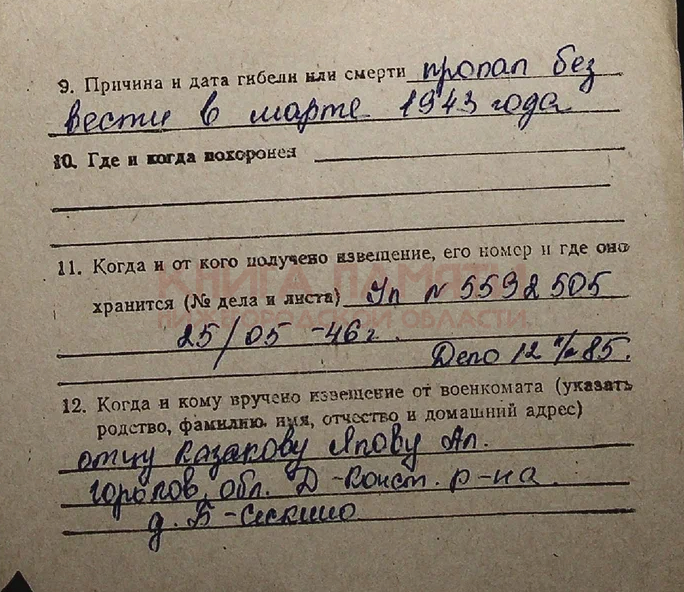 9. Причина и дата гибели или смерти пропал без
вести в марте 1943 года
10. Где и когда похоронен
11. Когда и от кого получено извещение, его номер и где оно
хранится (№ дела и листа) Уп N 5592505
25/05 -46 г.
Дело 12 85.
12. Когда и кому вручено извещение от военкомата (указать
родство, фамилию, имя, отчество и домашний адрес)
отцу Казакову Ал.
Горьков. обл. Д-Конст. р-на.
д. Б-Сескино
КНИГА ПАМЯТИ
НИЖЕГОРОДСКОЙ ОБЛАСТИ.